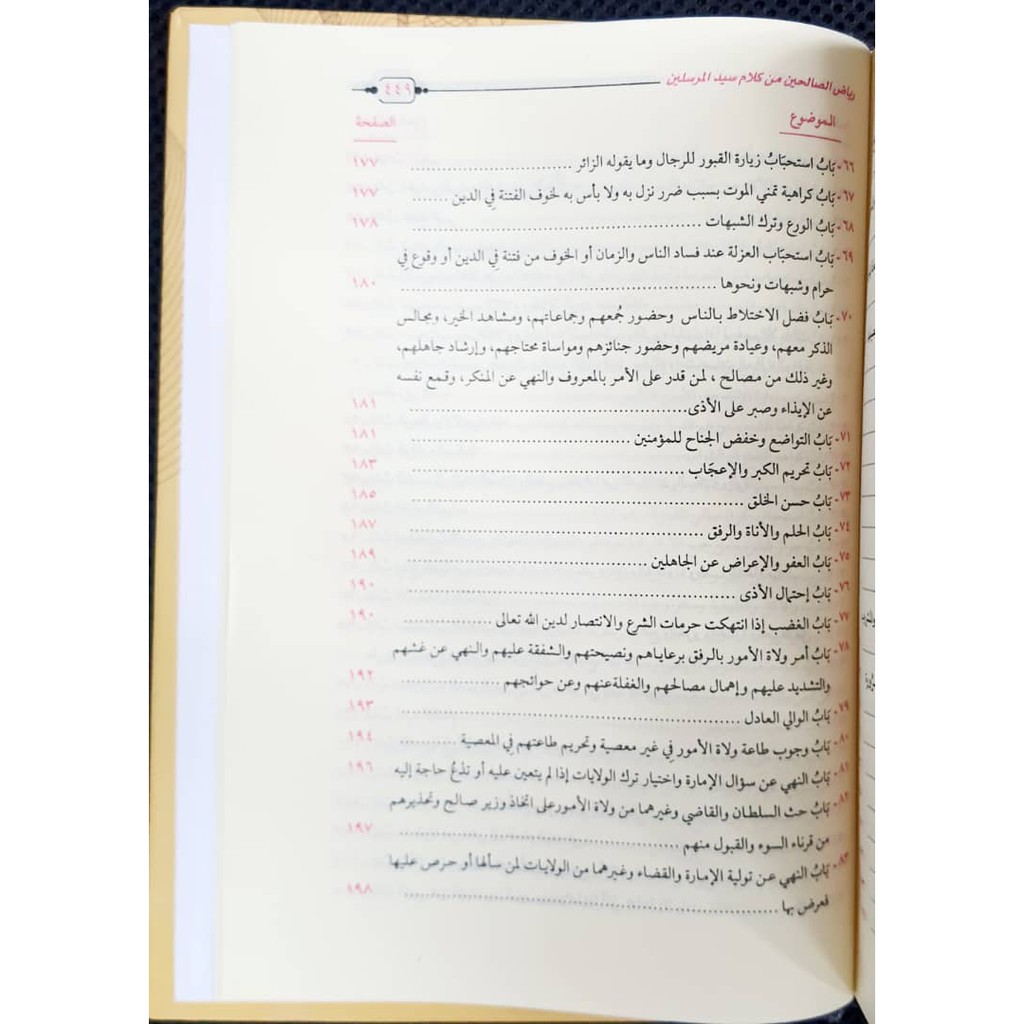 رياض الصالحين من كلام سيد المرسلين
٤٤٩
الموضوع
الصفحة
٦٦- بَابُ استحبَابُ زيارة القبور للرجال وما يقوله الزائر ........................ ١٧٧
٦٧- بَابُ كراهية تمني الموت بسبب ضرر نزل به ولا بأس به لخوف الفتنة فِي الدين ....... ١٧٧
٦٨- بَابُ الورع وترك الشبهات ................................................ ١٧٨
٦٩- بَابُ استحبَاب العزلة عند فساد الناس والزمان أو الخوف من فتنة فِي الدين أو وقوع فِي
حرام وشبهات ونحوها ................................................ ١٨٠
٧٠- بَابُ فضل الاختلاط بالناس وحضور جُمعهم وجماعاتهم، ومشاهد الخير، ومجالس
الذكر معهم، وعيادة مريضهم وحضور جنائزهم ومواساة محتاجهم، وإرشاد جاهلهم،
وغير ذلك من مصالح ، لمن قدر على الأمر بالمعروف والنهي عن المنكر، وقمع نفسه
عن الإيذاء وصبر على الأذى........................................... ١٨١
٧١- بَابُ التواضع وخفض الجناح للمؤمنين .................................. ١٨١
٧٢- بَابُ تحريم الكبر والإعجَاب .......................................... ١٨٣
٧٣- بَابُ حسن الخلق .................................................... ١٨٥
٧٤- بَابُ الحلم والأناة والرفق ............................................. ١٨٧
٧٥- بَابُ العفو والإعراض عن الجاهلين ..................................... ١٨٩
٧٦- بَابُ إحتمال الأذى .................................................. ١٩٠
٧٧- بَابُ الغضب إذا انتهكت حرمات الشرع والانتصار لدين الله تعالى ................ ١٩٠
٧٨- بَابُ أمر ولاة الأمور بالرفق برعاياهم ونصيحتهم والشفقة عليهم والنهي عن غشهم
والتشديد عليهم وإهمال مصالحهم والغفلةعنهم وعن حوائجهم ................ ١٩٢
٧٩- بَابُ الوالي العادل ................................................... ١٩٣
٨٠- بَابُ وجوب طاعة ولاة الأمور في غير معصية وتحريم طاعتهم فِي المعصية ........... ١٩٤
٨١- بَابُ النهي عن سؤال الإمارة واختيار ترك الولايات إذا لم يتعين عليه أو تدْعُ حاجة إليه ١٩٦
٨٢- بَابُ حث السلطان والقاضي وغيرهما من ولاة الأمورعلى اتخاذ وزير صالح وتحذيرهم
من قرناء السوء والقبول منهم ............................................ ١٩٧
٨٣- بَابُ النهي عن تولية الإمارة والقضاء وغيرهما من الولايات لمن سألها أو حرص عليها
فعرض بها ........................................................... ١٩٨